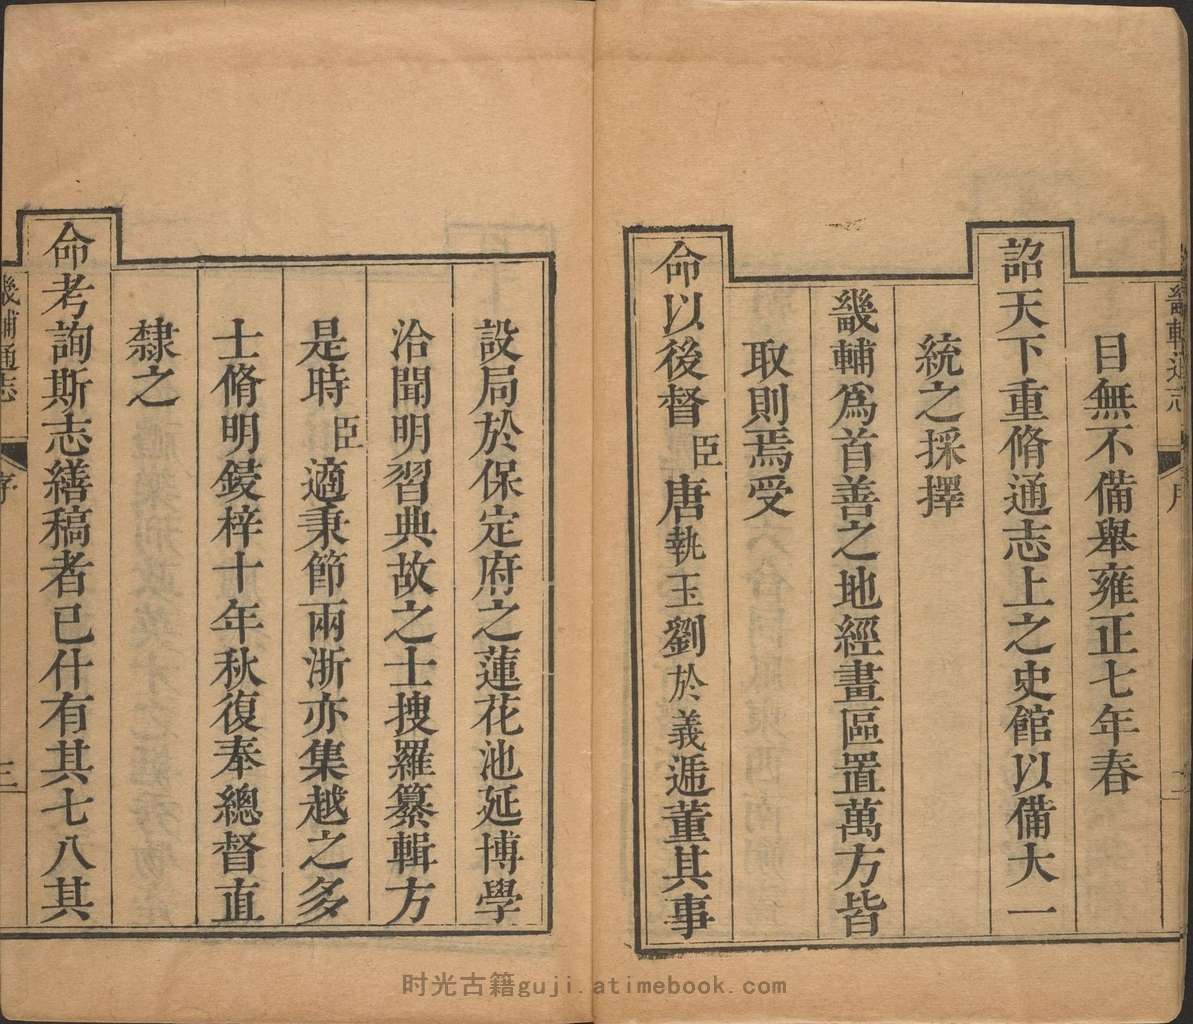 目無不備舉雍正七年春
詔天下重脩通志上之史館以備大一
統之採擇
畿輔爲首善之地經畫區置萬方皆
取則焉受
命以後督臣唐執玉劉於義遞董其事
設局於保定府之蓮花池延博學
洽聞明習典故之士捜羅纂輯方
是時臣適秉節兩浙亦集越之多
士脩明鋟梓十年秋復奉總督直
隸之
命考詢斯志繕稿者已什有其七八其
畿輔通志
序
三
时光古籍guji.atimebook.com